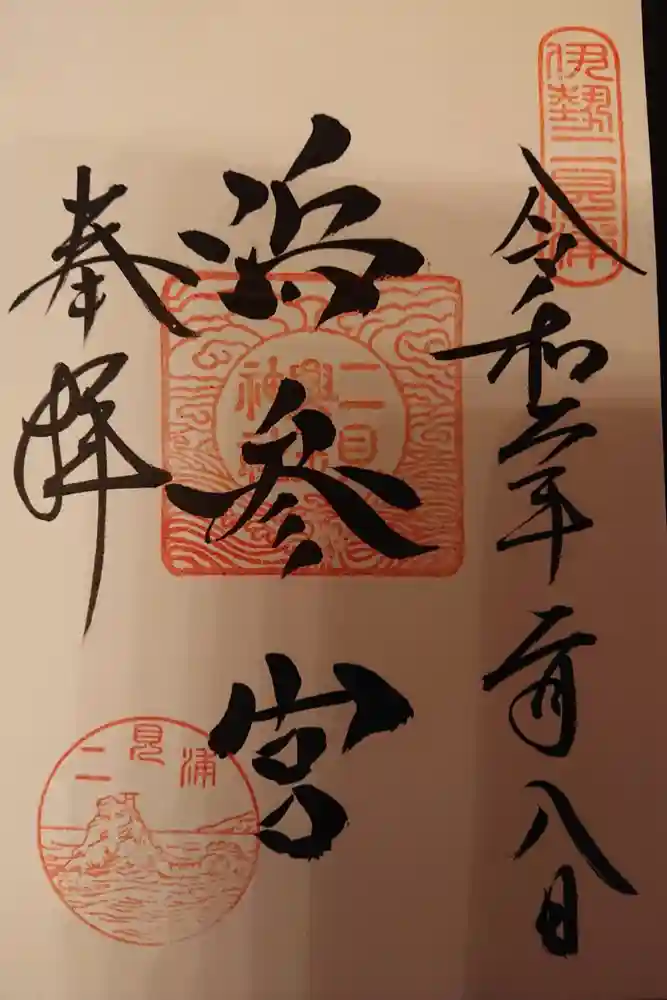 伊勢二見浦
令和二年二月八日
浜参宮
二見
興玉
神社
奉拝
二見浦